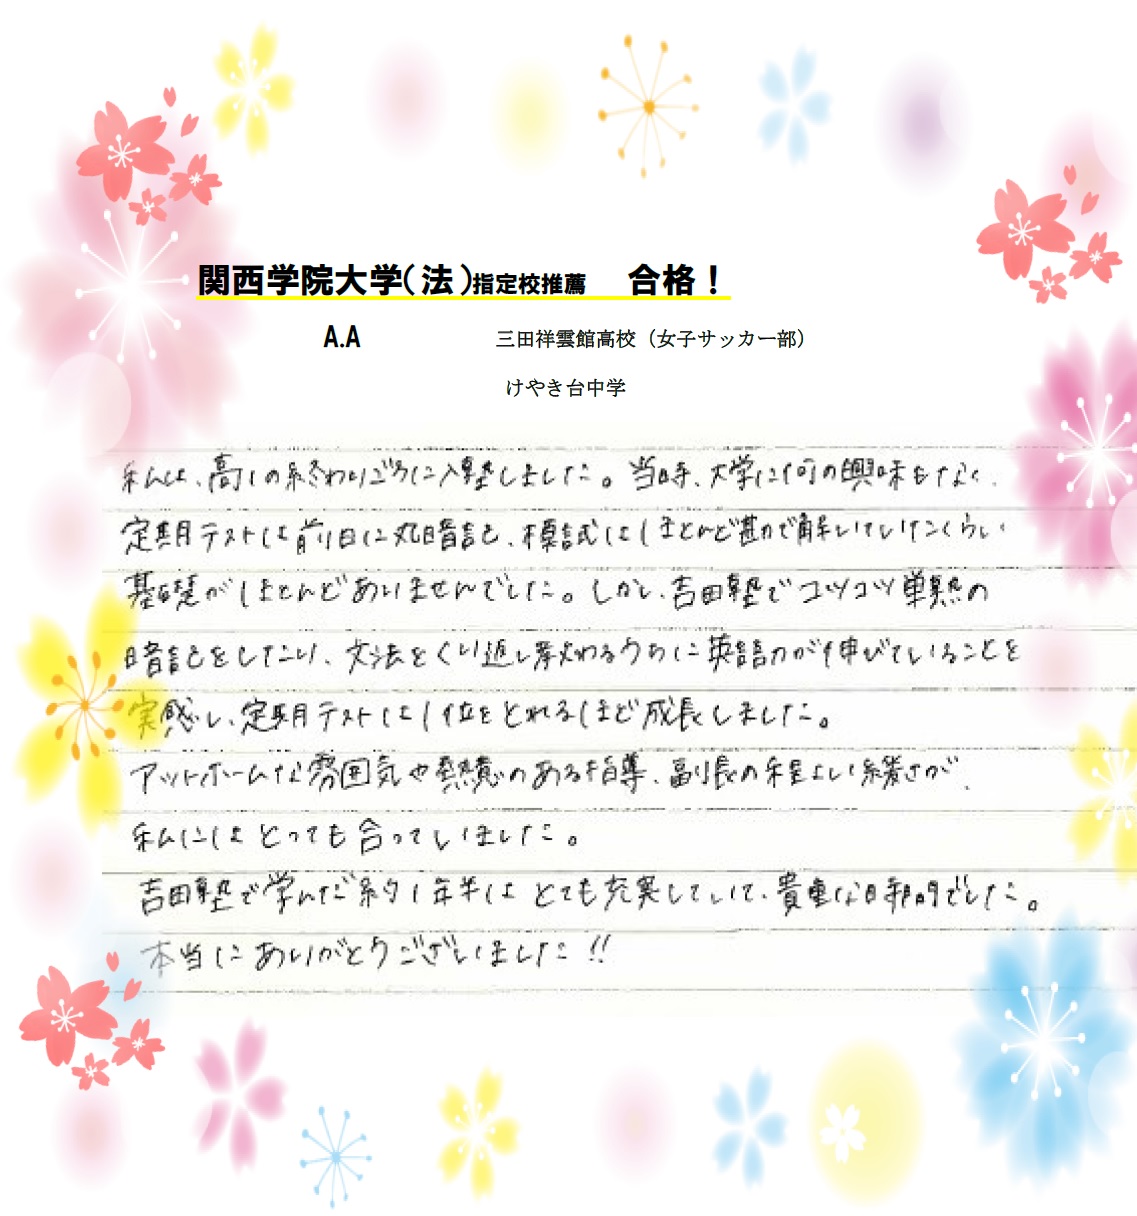 関西学院大学(法)指定校推薦 合格！
A.A 三田祥雲館高校（女子サッカー部）
けやき台中学
私は、高１の終わりごろに入塾しました。当時、大学に何の興味もなく、
定期テストは前日に丸暗記、模試はほとんど勘で解いていたくらい
基礎がほとんどありませんでした。しかし、吉田塾でコツコツ単熟の
暗記をしたり、文法をくり返し教わるうちに英語力が伸びていることを
実感し、定期テストは１位をとれるほど成長しました。
アットホームな雰囲気や熱意のある指導、副長の程よい緩さが、
私にはとっても合っていました。
吉田塾で学んだ約１年半はとても充実していて、貴重な日時でした。
本当にありがとうございました!!